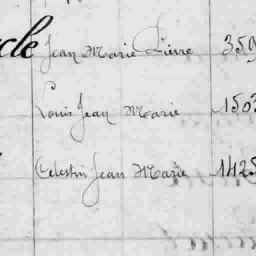 cle Jean Marie Pierre 359
Louis Jean Marie 1503
Celestin Jean Marie 1425